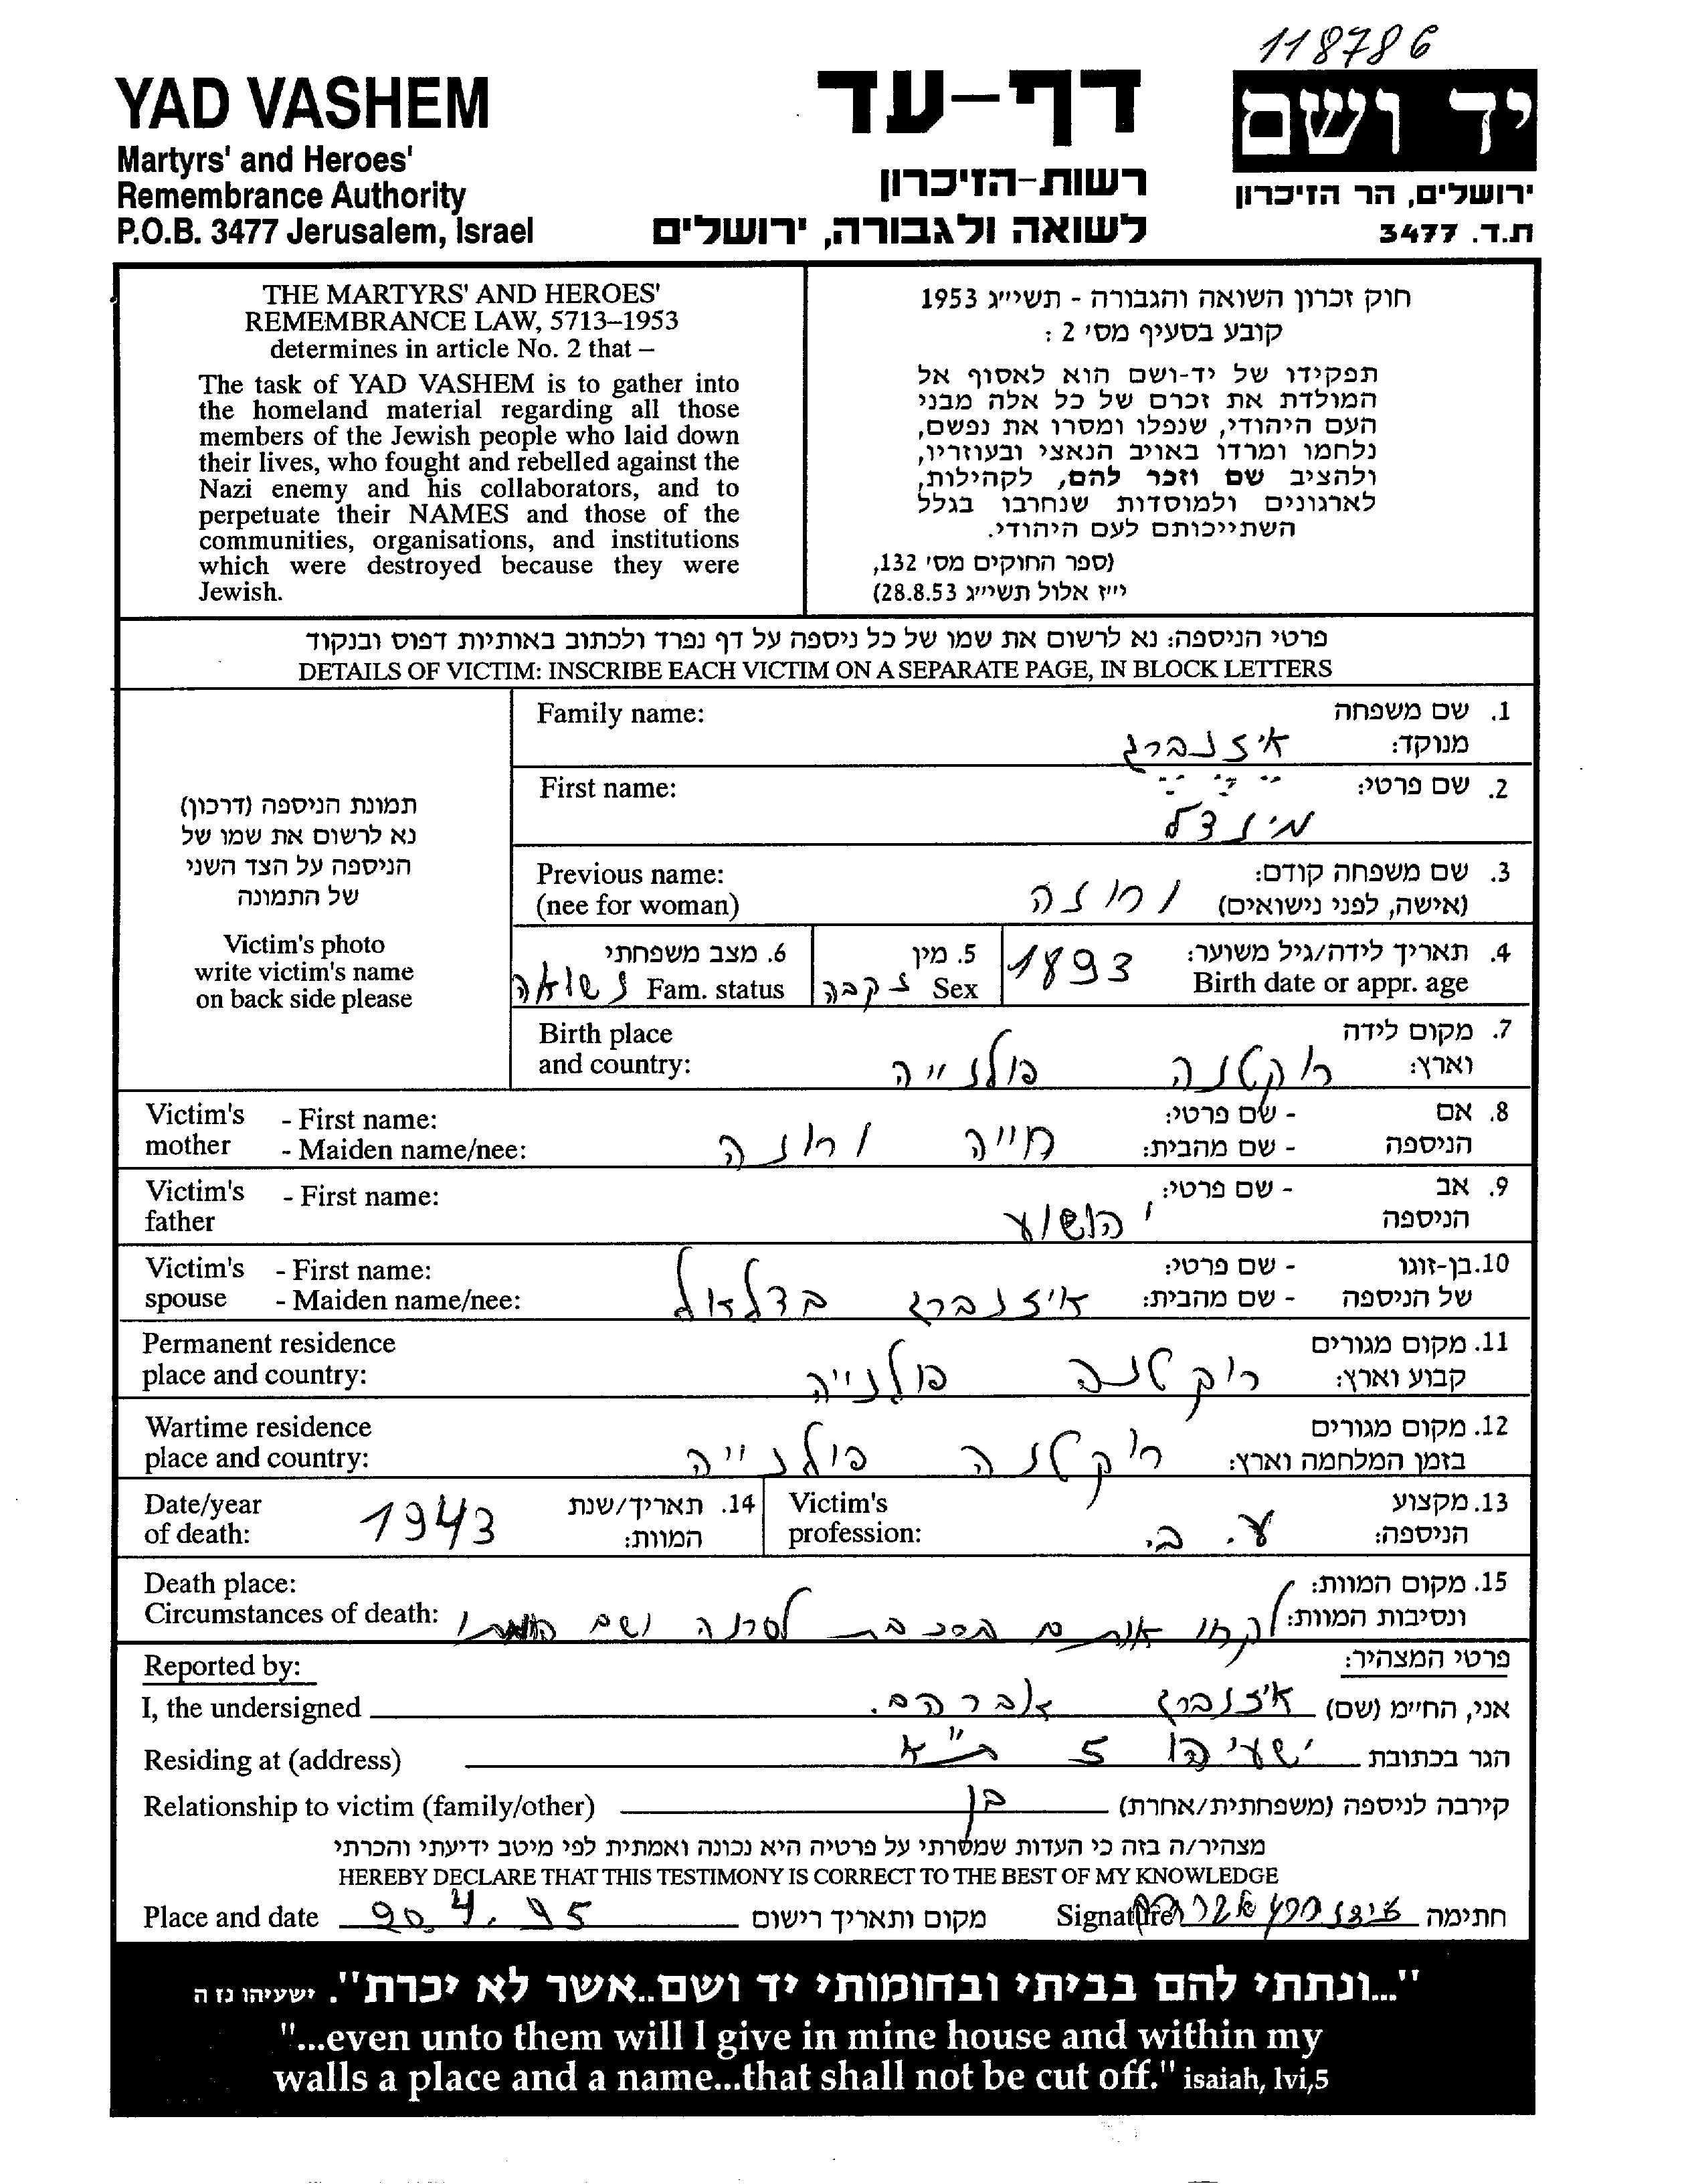 118786
YAD VASHEM
Martyrs' and Heroes'
Remembrance Authority
P.O.B. 3477 Jerusalem, Israel
דף-עד
רשות-הזיכרון
לשואה ולגבורה, ירושלים
יד ושם
ירושלים, הר הזיכרון
ת.ד. 3477
THE MARTYRS' AND HEROES'
REMEMBRANCE LAW, 5713–1953
determines in article No. 2 that –
The task of YAD VASHEM is to gather into
the homeland material regarding all those
members of the Jewish people who laid down
their lives, who fought and rebelled against the
Nazi enemy and his collaborators, and to
perpetuate their NAMES and those of the
communities, organisations, and institutions
which were destroyed because they were
Jewish.
חוק זכרון השואה והגבורה - תשי״ג 1953
קובע בסעיף מס׳ 2 :
תפקידו של יד-ושם הוא לאסוף אל
המולדת את זכרם של כל אלה מבני
העם היהודי, שנפלו ומסרו את נפשם,
נלחמו ומרדו באויב הנאצי ובעוזריו,
ולהציב שם וזכר להם, לקהילות,
לארגונים ולמוסדות שנחרבו בגלל
השתייכותם לעם היהודי.
(ספר החוקים מס׳ 132,
י״ז אלול תשי״ג 28.8.53)
פרטי הניספה: נא לרשום את שמו של כל ניספה על דף נפרד ולכתוב באותיות דפוס ובנקוד
DETAILS OF VICTIM: INSCRIBE EACH VICTIM ON A SEPARATE PAGE, IN BLOCK LETTERS
תמונת הניספה (דרכון)
נא לרשום את שמו של
הניספה על הצד השני
של התמונה
Victim's photo
write victim's name
on back side please
Family name: 1. שם משפחה
מנוקד: איזנברג
First name: 2. שם פרטי:
מינדל
Previous name: 3. שם משפחה קודם:
(nee for woman) (אישה, לפני נישואים) ורוזנה
4. תאריך לידה/גיל משוער: 1893 5. מין 6. מצב משפחתי
Birth date or appr. age Sex נקבה Fam. status נשואה
Birth place 7. מקום לידה
and country: וארץ: רוקטנה פולנייה
Victim's - First name: 8. אם - שם פרטי:
mother - Maiden name/nee: הניספה - שם מהבית: חייה ורוזנה
Victim's - First name: 9. אב - שם פרטי:
father הניספה יהושוע
Victim's - First name: 10. בן-זוגו - שם פרטי:
spouse - Maiden name/nee: של הניספה - שם מהבית: איזנברג בצלאל
Permanent residence 11. מקום מגורים
place and country: קבוע וארץ: רוקטנה פולנייה
Wartime residence 12. מקום מגורים
place and country: בזמן המלחמה וארץ: רוקטנה פולנייה
Date/year 14. תאריך/שנת Victim's 13. מקצוע
of death: 1943 המוות: profession: הניספה: ע. ב.
Death place: 15. מקום המוות:
Circumstances of death: ונסיבות המוות: לקחו אותם ברכבת לסרנה ושם
Reported by: פרטי המצהיר:
I, the undersigned אני, החיימ (שם) איזנברג אברהם.
Residing at (address) הגר בכתובת ישעיהו 5 ת״א
Relationship to victim (family/other) קירבה לניספה (משפחתית/אחרת) בן
מצהיר/ה בזה כי העדות שמסרתי על פרטיה היא נכונה ואמתית לפי מיטב ידיעתי והכרתי
HEREBY DECLARE THAT THIS TESTIMONY IS CORRECT TO THE BEST OF MY KNOWLEDGE
Place and date 20.4.95 מקום ותאריך רישום Signature איזנברג אברהם חתימה
"...ונתתי להם בביתי ובחומותי יד ושם..אשר לא יכרת". ישעיהו נז ה
"...even unto them will I give in mine house and within my
walls a place and a name...that shall not be cut off." isaiah, lvi,5